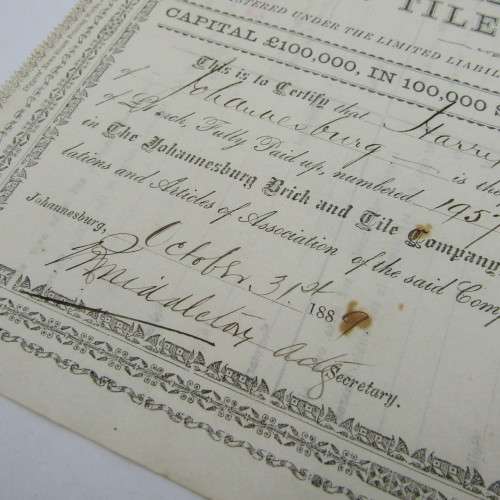 TILE
REGISTERED UNDER THE LIMITED LIABIL
CAPITAL £100,000, IN 100,000
This is to Certify that Harri
of Johannesburg is the
of £1 each, Fully Paid up, numbered 1951
in The Johannesburg Brick and Tile Company
lations and Articles of Association of the said Comp
Johannesburg, October 31st 1889.
Middleton actg
Secretary.